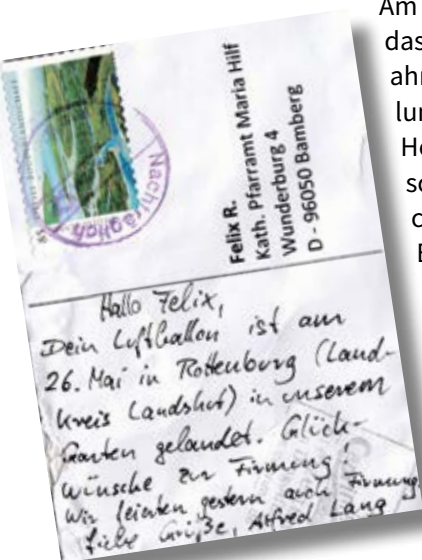 Am
das
ahr
lur
He
Nachträglich
Felix R.
Kath. Pfarramt Maria Hilf
Wunderburg 4
D - 96050 Bamberg
Hallo Felix,
Dein Luftballon ist am
26. Mai in Rottenburg (Land-
kreis Landshut) in unserem
Garten gelandet. Glück-
wünsche zur Firmung!
Wir feierten gestern auch Firmung
Liebe Grüße, Alfred Lang